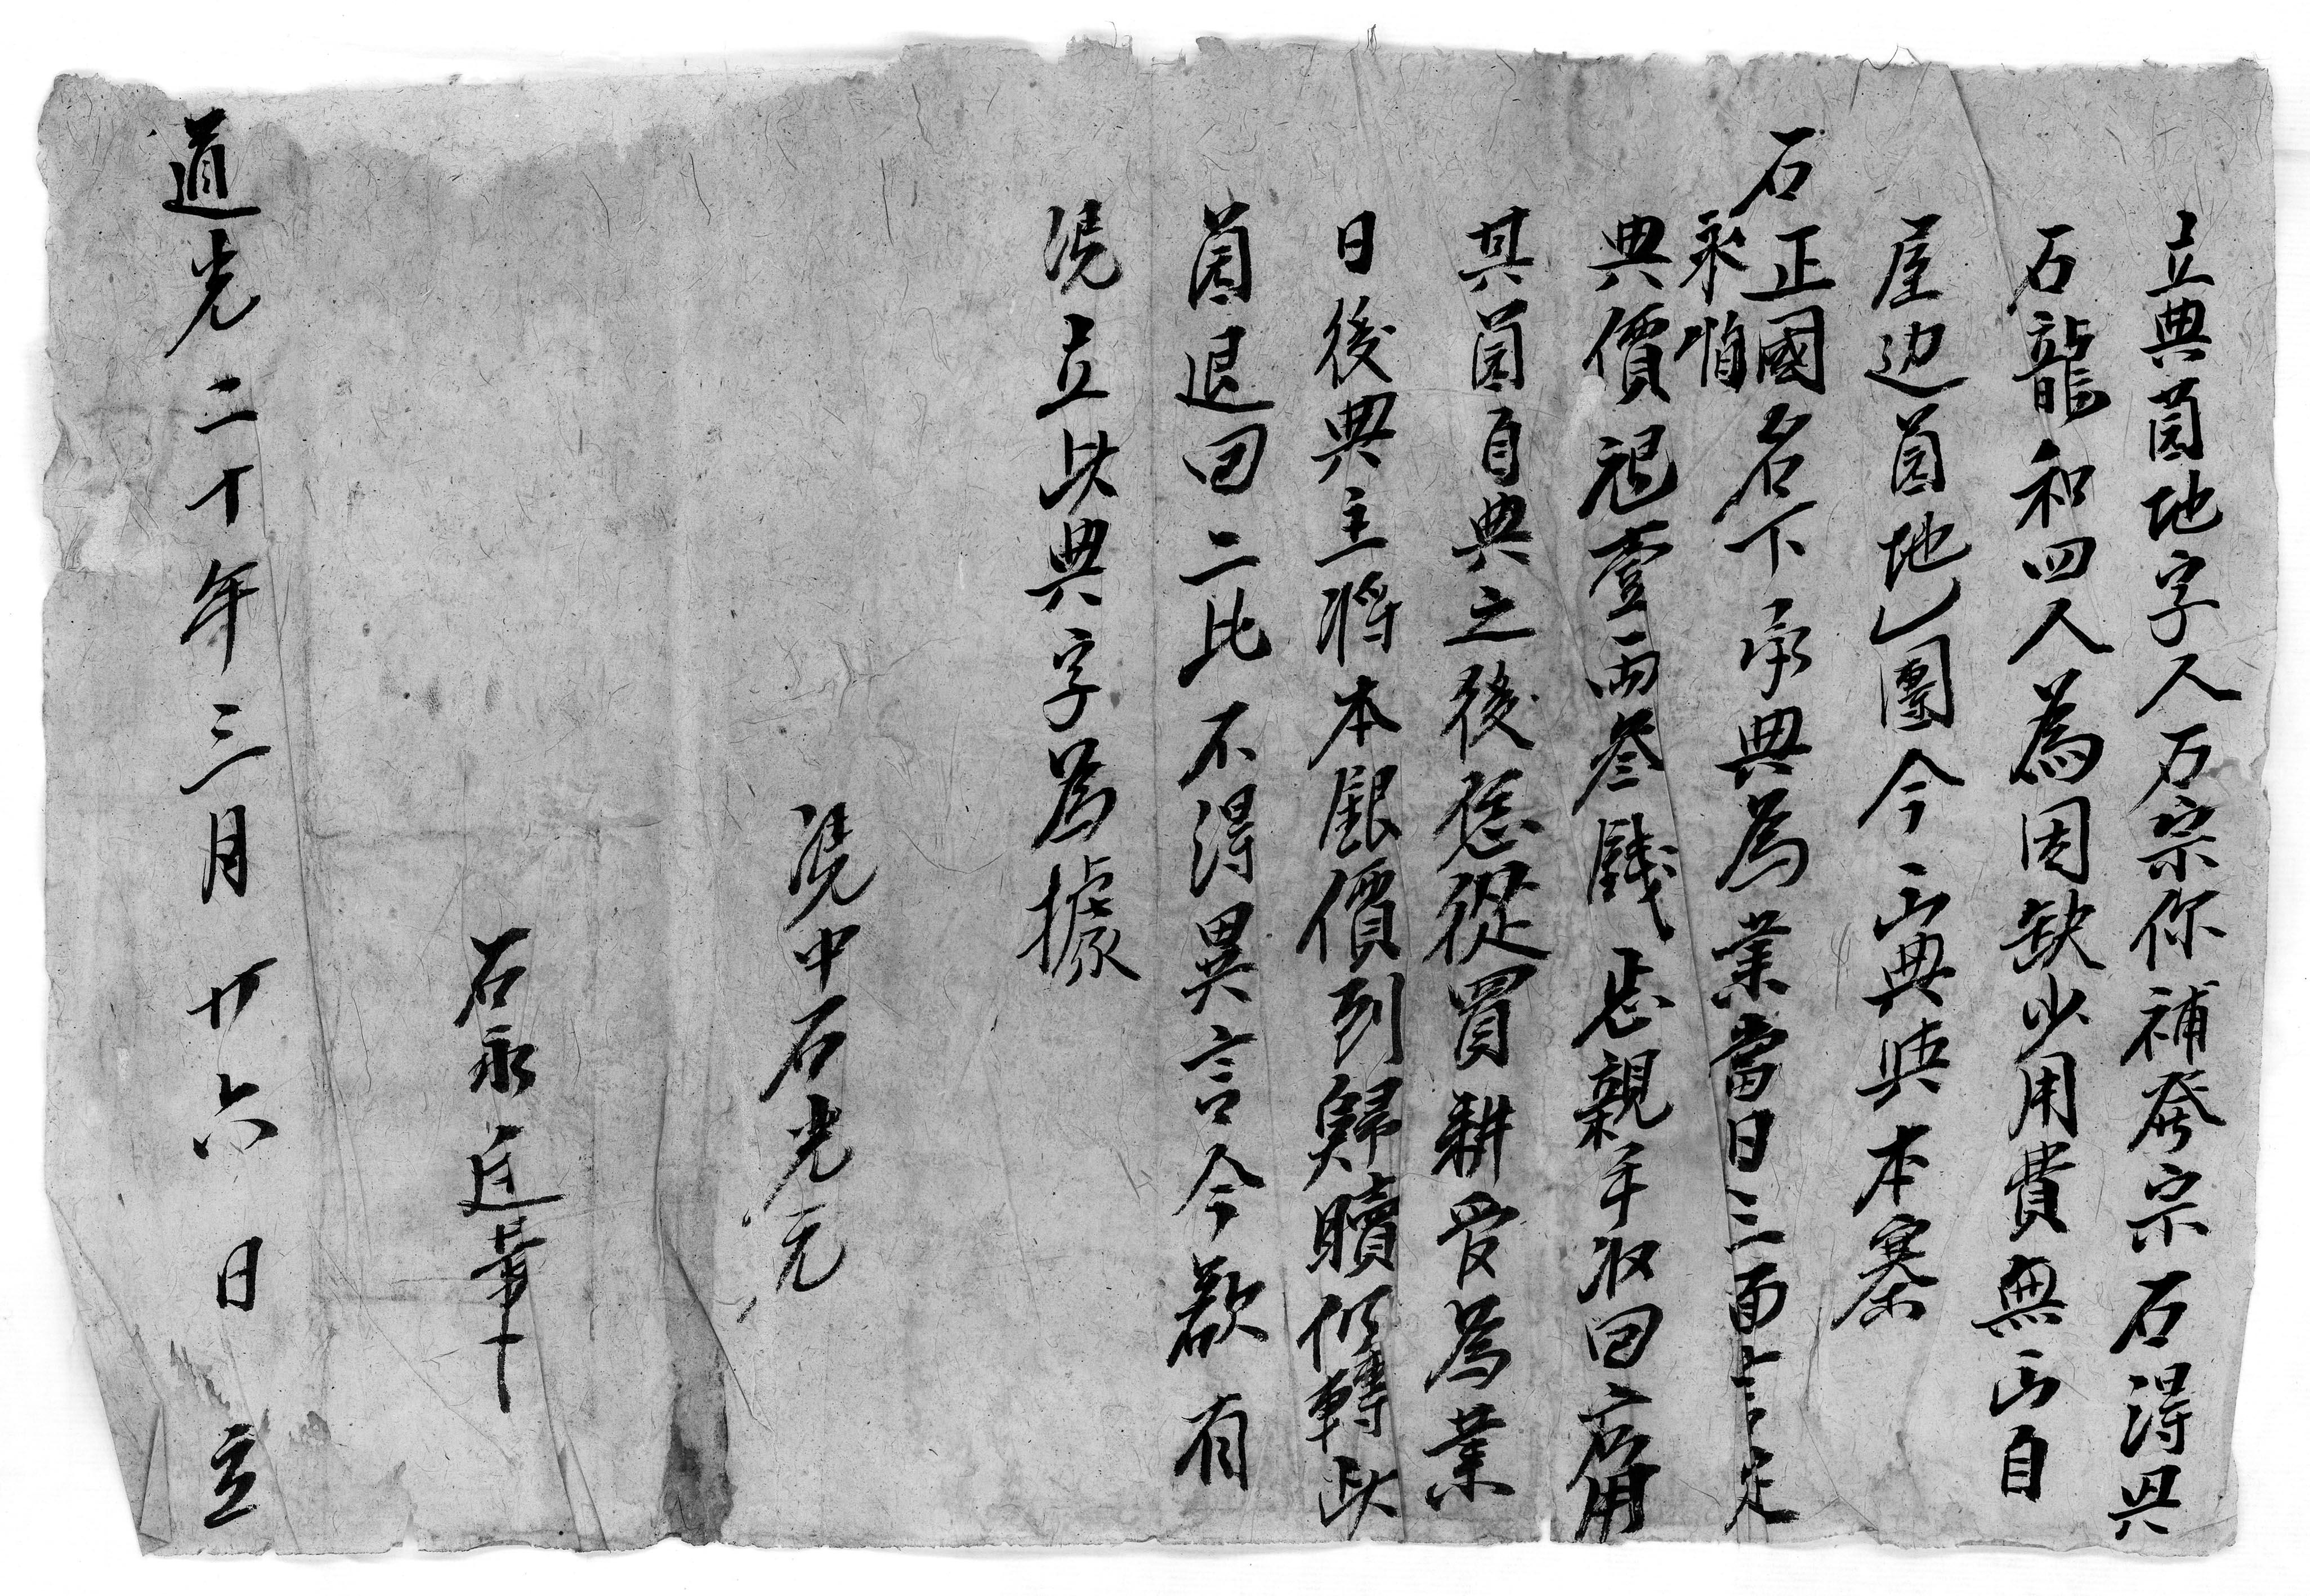 立典园地字人石宗你補發宗石得興
石龍和四人為因缺少用費無出自
屋边园地乙團今出典與本寨
石正國名下承典為業當日三面言定
永怕
典價艮壹両叁錢正親手收回應用
其园自典之後恁從買耕管為業
日後典主將本銀價到歸贖仍轉此
园退回二比不得異言今欲有
凭立此典字為據
凭中石光元
石永廷筆
道光二十年三月廿六日立